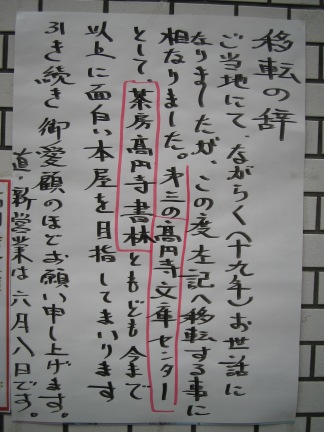 移転の辞
ご当地にて、ながらく(十九年)お世話に
なりましたが、この度左記へ移転する事に
相なりました。才三の高円寺文庫センター
として、茶房高円寺書林ともども今まで
以上に面白い本屋を目指してまいります
引き続き御愛顧のほどお願い申し上げます。
追・新営業は六月八日です。